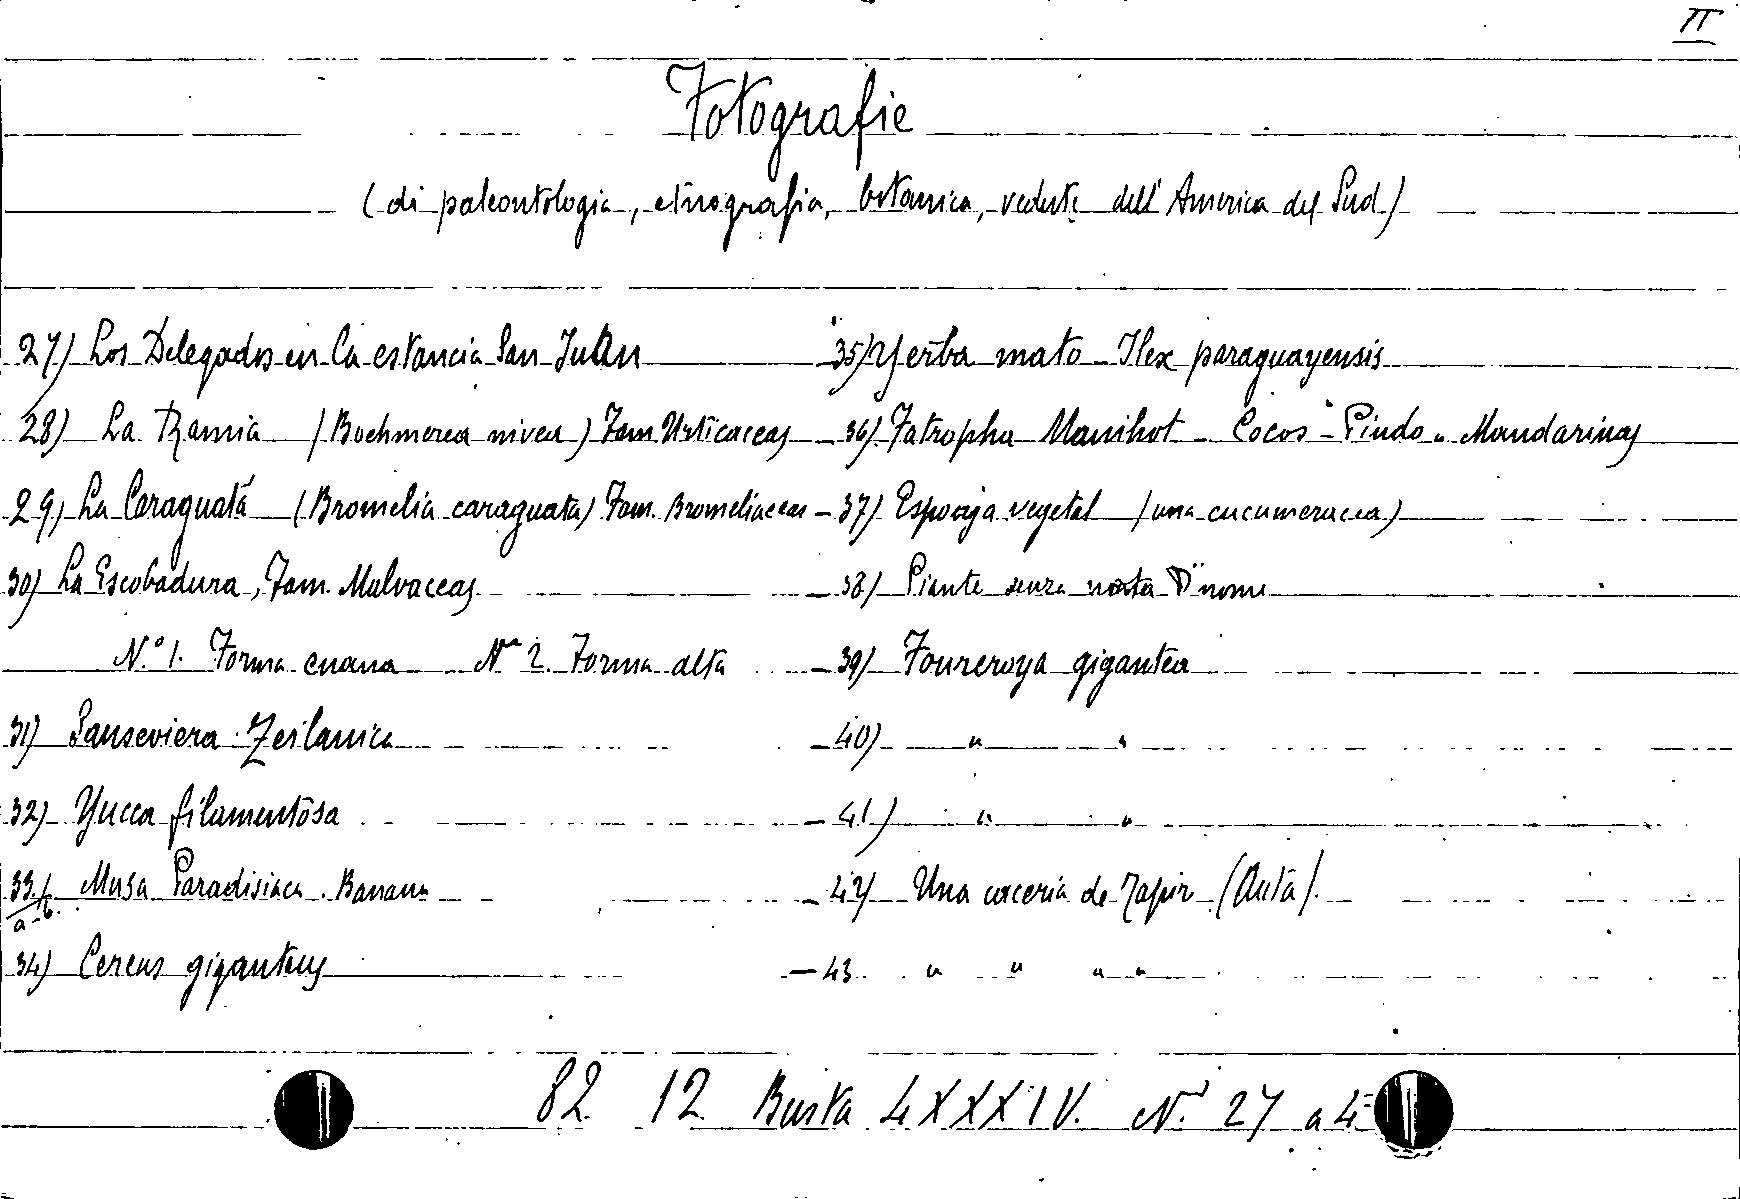 II
Fotografie
(di paleontologia, etnografia, botanica, vedute dell'America del Sud)
27) Los Delegados en la estancia San Juan
28) La Ramia (Boehmerea nivea) Fam. Urticaceas
29) La Caraguatá (Bromelia caraguata) Fam. Bromeliaceas
30) La Escobadura, Fam. Malvaceas
N.° 1. Forma enana N° 2. Forma alta
31) Sanseviera Zeilanica
32) Yucca filamentosa
33) a-b. Musa Paradisiaca. Banana
34) Cereus giganteus
35) Yerba mato - Ilex paraguayensis
- 36) Jatropha Manihot - Cocos - Pindo - Mandarinas
- 37) Esponja vegetal (una cucumeracea)
- 38) Piante senza nome
- 39) Foureroya gigantea
- 40) " "
- 41) " "
- 42) Una caceria de Tapir (Anta).
- 43. " " " "
82 12 Busta LXXXIV. N.i 27 a 4